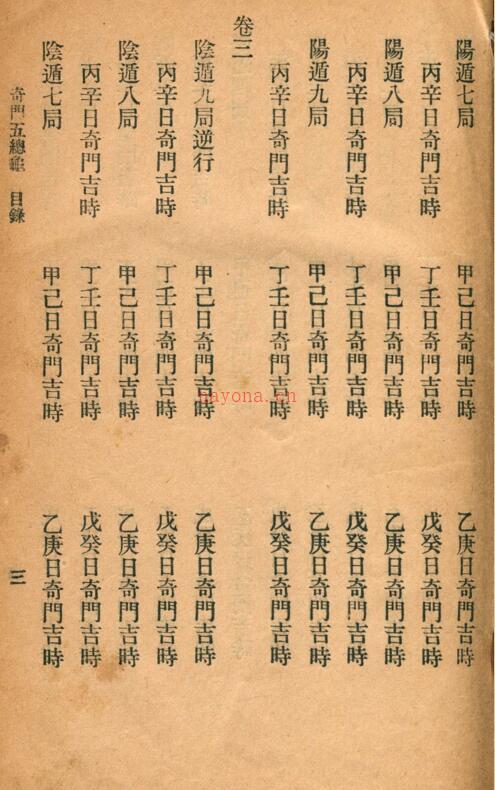 陽遁七局　甲己日奇門吉時　乙庚日奇門吉時
丙辛日奇門吉時　丁壬日奇門吉時　戊癸日奇門吉時
陽遁八局　甲己日奇門吉時　乙庚日奇門吉時
丙辛日奇門吉時　丁壬日奇門吉時　戊癸日奇門吉時
陽遁九局　甲己日奇門吉時　乙庚日奇門吉時
丙辛日奇門吉時　丁壬日奇門吉時　戊癸日奇門吉時
卷三
陰遁九局逆行　甲己日奇門吉時　乙庚日奇門吉時
丙辛日奇門吉時　丁壬日奇門吉時　戊癸日奇門吉時
陰遁八局　甲己日奇門吉時　乙庚日奇門吉時
丙辛日奇門吉時　丁壬日奇門吉時　戊癸日奇門吉時
陰遁七局　甲己日奇門吉時　乙庚日奇門吉時
奇門五總龜　目錄　三
nayona.cn